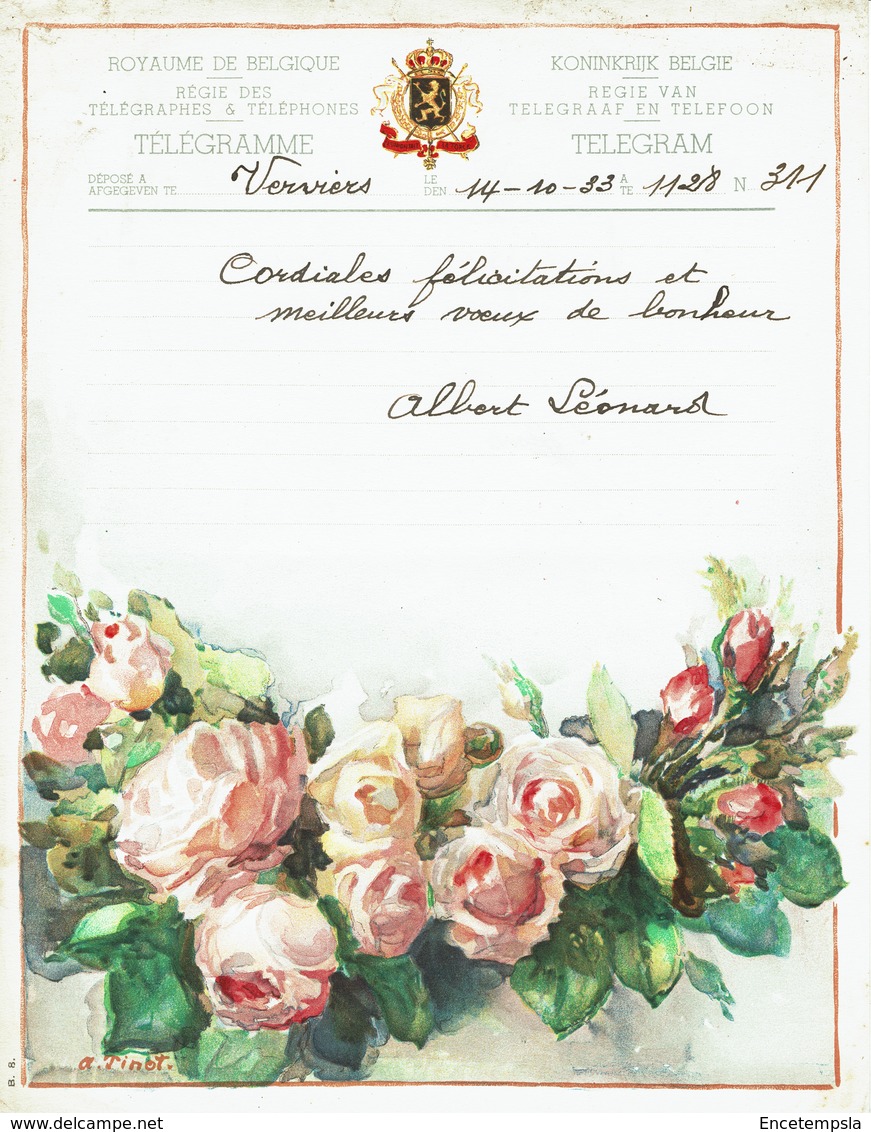 ROYAUME DE BELGIQUE
RÉGIE DES
TÉLÉGRAPHES & TÉLÉPHONES
TÉLÉGRAMME
KONINKRIJK BELGIE
REGIE VAN
TELEGRAAF EN TELEFOON
TELEGRAM
DÉPOSÉ A
AFGEGEVEN TE
Verviers
LE
DEN
14-10-33
A
TE
1128
N
311
Cordiales félicitations et
meilleurs vœux de bonheur
Albert Léonard
a. Pinot.
B. 8.
www.delcampe.net
Encetempsla